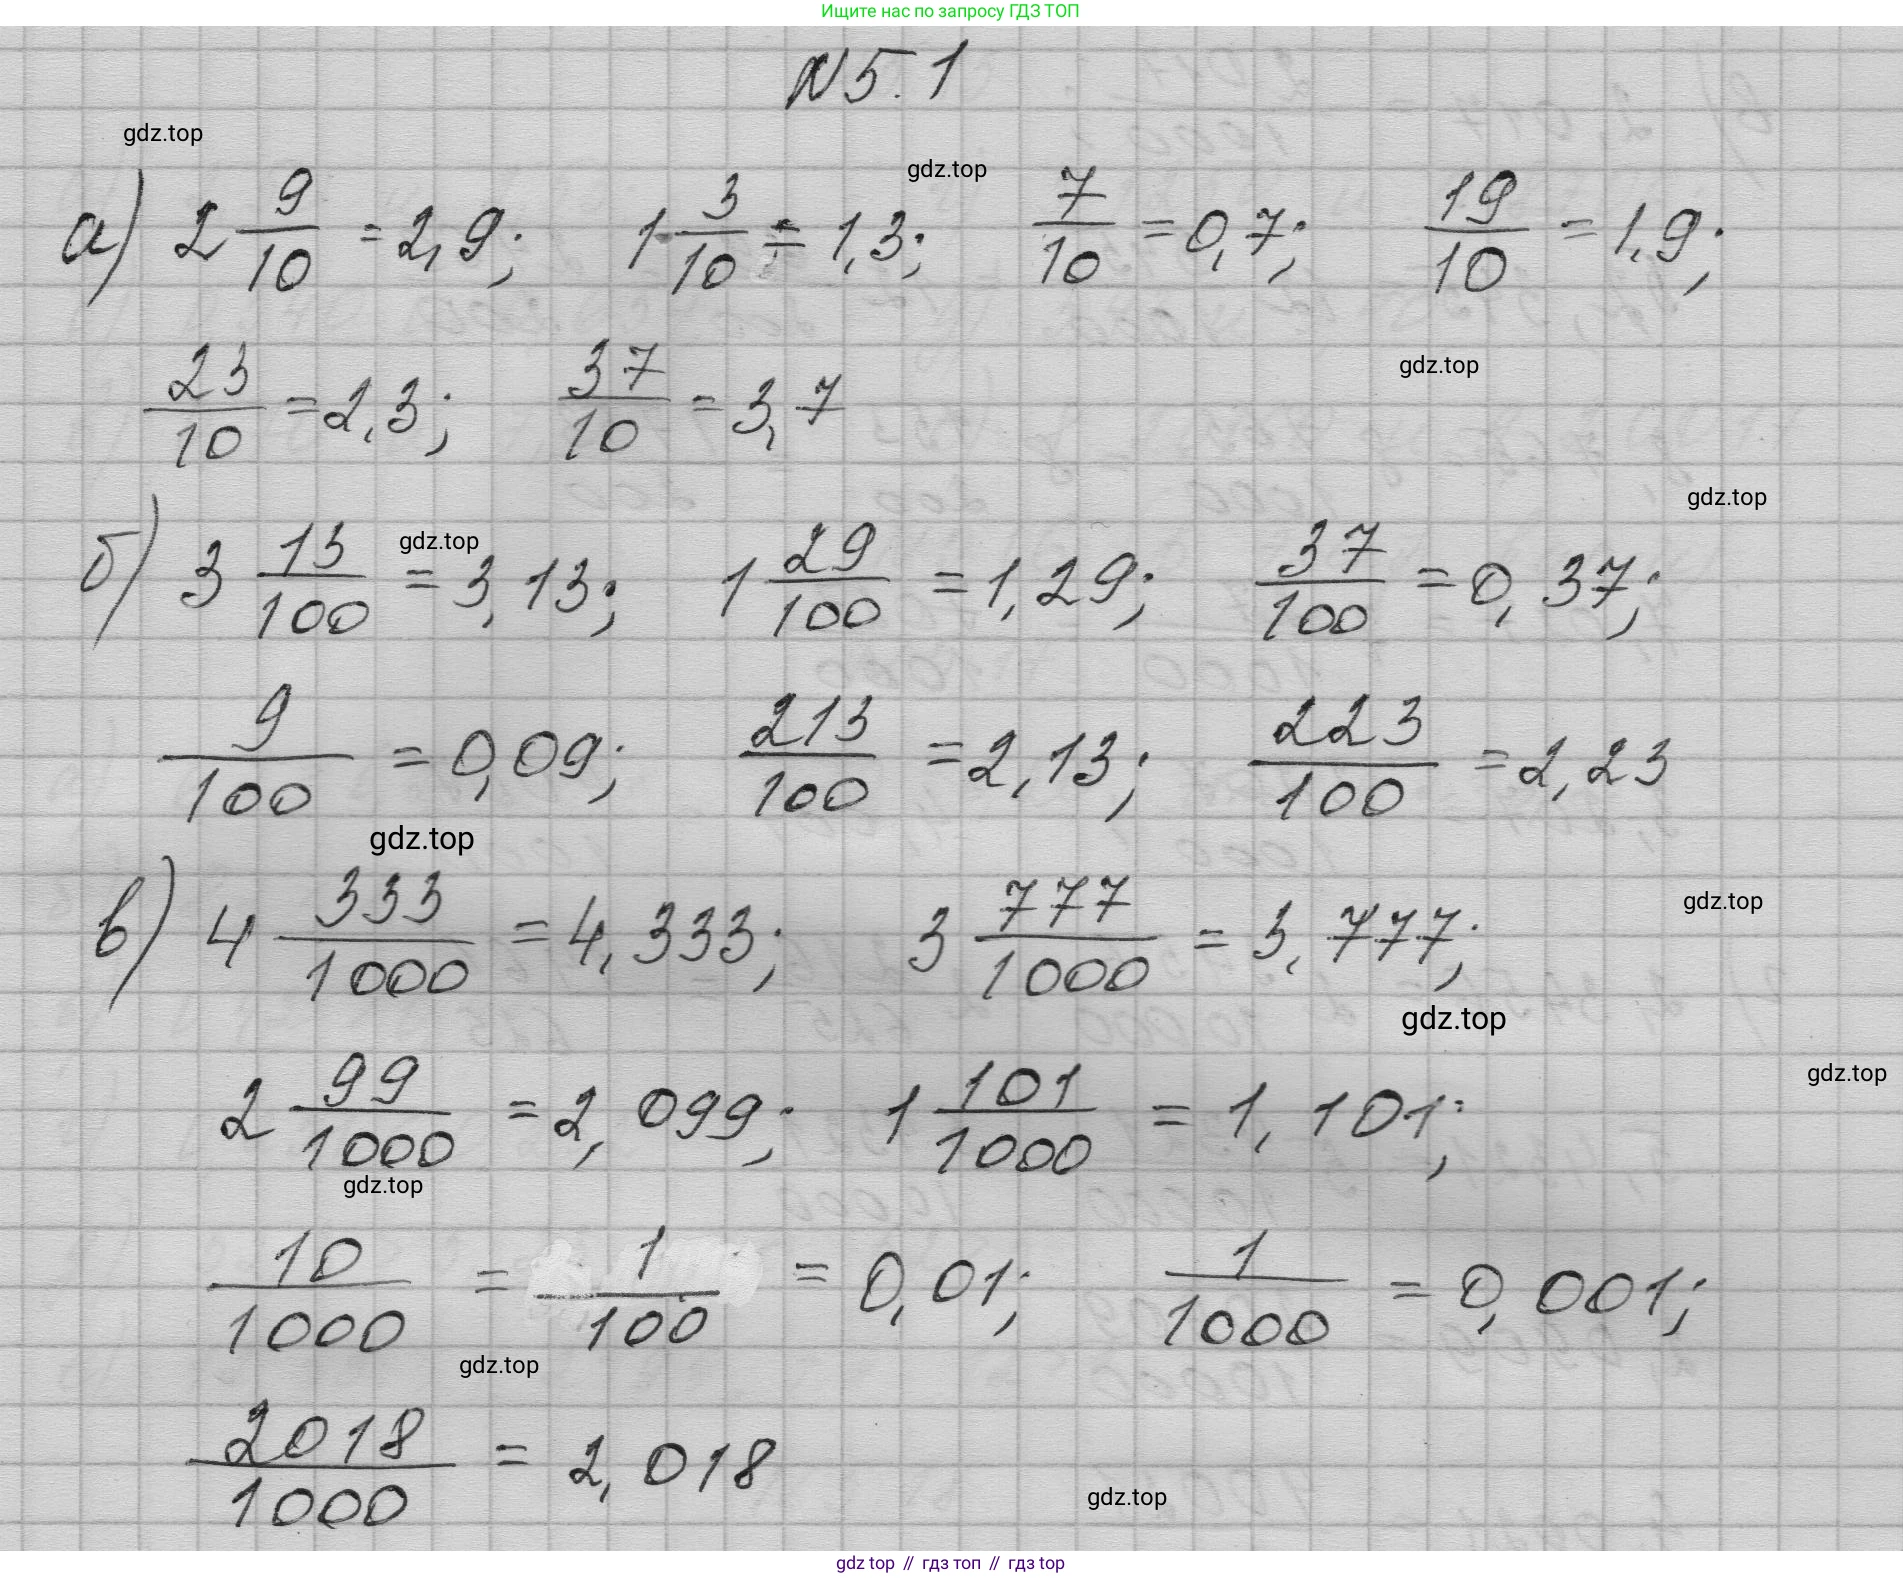 Ищите нас по запросу ГДЗ ТОП
N 5.1
gdz.top
gdz.top
а) 2 9/10 = 2,9; 1 3/10 = 1,3; 7/10 = 0,7; 19/10 = 1,9;
gdz.top
23/10 = 2,3; 37/10 = 3,7
gdz.top
gdz.top
б) 3 13/100 = 3,13; 1 29/100 = 1,29; 37/100 = 0,37;
9/100 = 0,09; 213/100 = 2,13; 223/100 = 2,23
gdz.top
gdz.top
в) 4 333/1000 = 4,333; 3 777/1000 = 3,777;
gdz.top
gdz.top
2 99/1000 = 2,099; 1 101/1000 = 1,101;
gdz.top
10/1000 = 1/100 = 0,01; 1/1000 = 0,001;
gdz.top
2018/1000 = 2,018
gdz.top
gdz top // гдз топ // гдз top